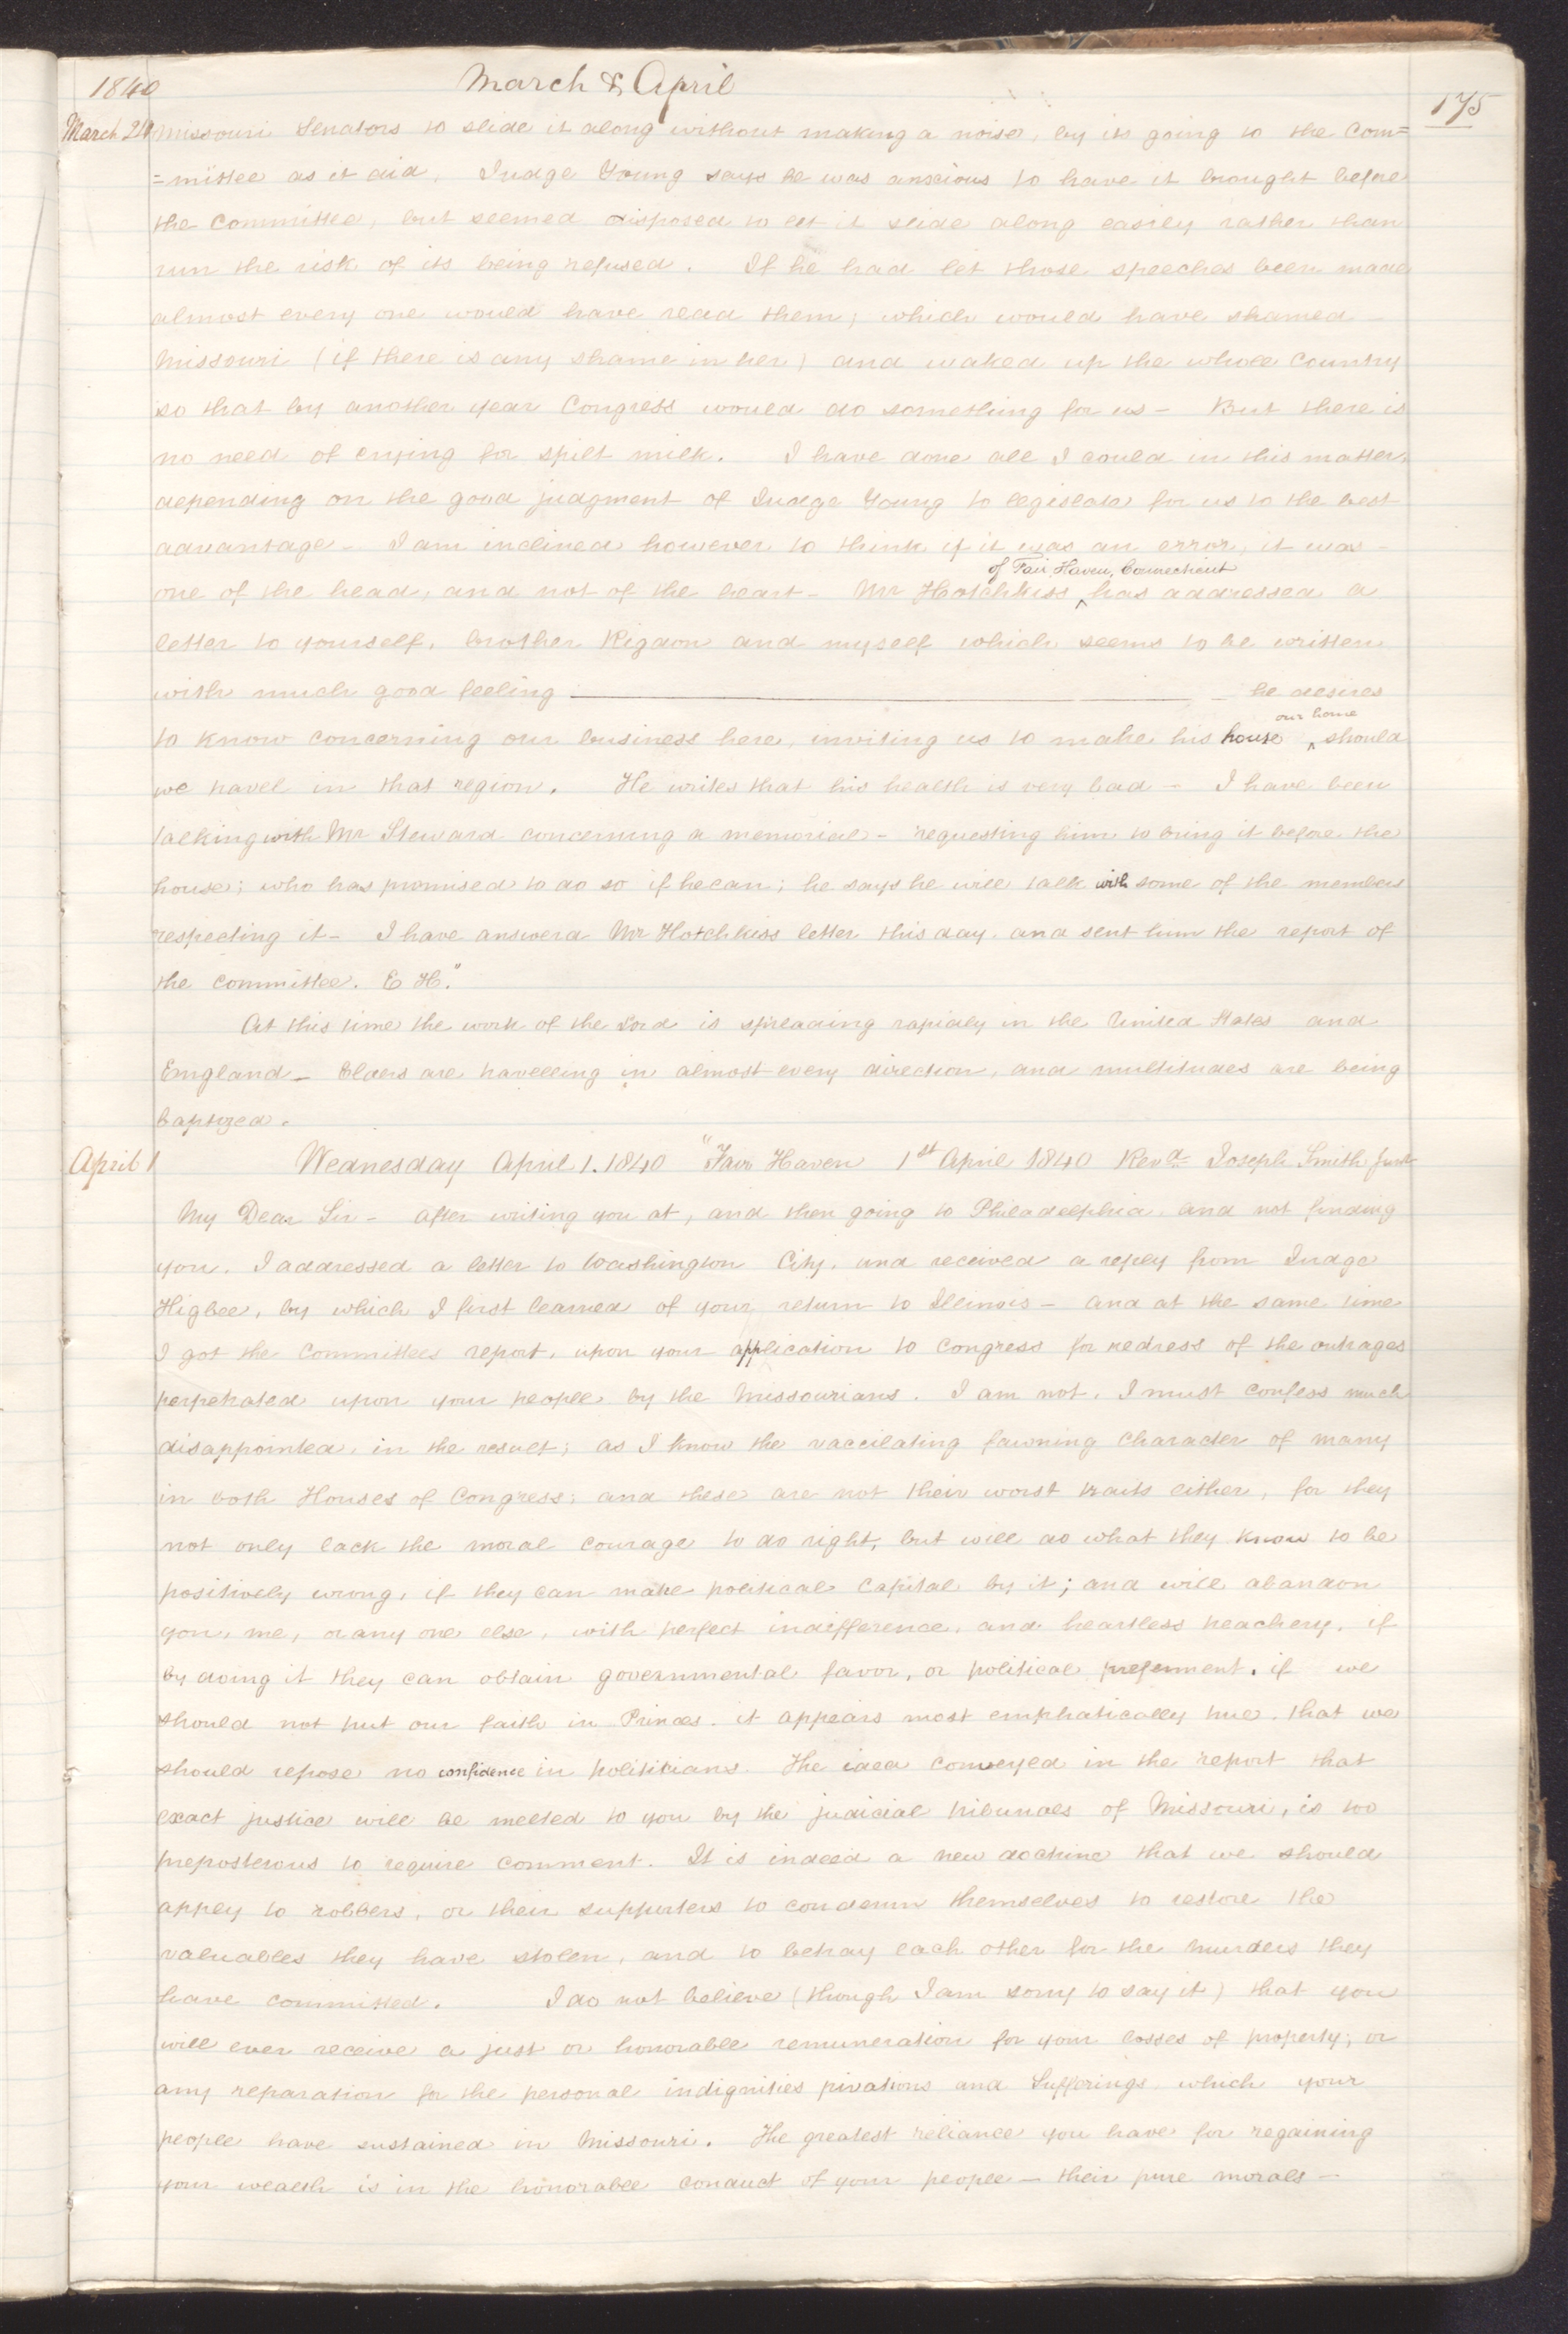 1840 March & April
175
March 24 Missouri Senators to slide it along without making a noise, by its going to the Com=
=mittee as it did. Judge Young says he was anxious to have it brought before
the Committee, but seemed disposed to let it slide along easily rather than
run the risk of its being refused. If he had let those speeches been made
almost every one would have read them; which would have shamed
Missouri (if there is any shame in her) and waked up the whole Country
so that by another year Congress would do something for us – But there is
no need of crying for spilt milk. I have done all I could in this matter,
depending on the good judgment of Judge Young to legislate for us to the best
advantage – I am inclined however to think if it was an error, it was
of Fair Haven, Connecticut
one of the head, and not of the heart – Mr Hotchkiss ^ has addressed a
letter to yourself, brother Rigdon and myself which seems to be written
with much good feeling — he desires
our home
to know concerning our business here, inviting us to make his house ^ should
we travel in that region. He writes that his health is very bad – I have been
talking with Mr Steward concerning a memorial – requesting him to bring it before the
house; who has promised to do so if he can; he says he will talk with some of the members
respecting it – I have answerd Mr Hotchkiss letter this day. and sent him the report of
the Committee. E H."
At this time the work of the Lord is spreading rapidly in the United States and
England – Elders are travelling in almost every direction, and multitudes are being
baptized.
April 1 Wednesday April 1. 1840 "Fair Haven 1st April 1840 Revd Joseph Smith Junr
My Dear Sir – After writing you at, and then going to Philadelphia and not finding
you. I addressed a letter to Washington City. and received a reply from Judge
Higbee, by which I first learned of your return to Illinois – and at the same time
I got the Committees report, upon your application to Congress for redress of the outrages
perpetrated upon your people by the Missourians. I am not, I must confess much
disappointed, in the result; as I know the vaccilating fawning character of many
in both Houses of Congress; and these are not their worst traits either, for they
not only lack the moral courage to do right, but will do what they know to be
positively wrong, if they can make political capital by it; and will abandon
you, me, or any one else, with perfect indifference, and heartless treachery, if
by doing it they can obtain governmental favor, or political preferment. if we
should not put our faith in Princes. it appears most emphatically true. that we
should repose no confidence in politicians. The idea conveyed in the report that
exact justice will be melted to you by the judicial tribunals of Missouri, is too
preposterous to require comment. It is indeed a new doctrine that we should
appey to robbers, or their supporters to condemn themselves to restore the
valuables they have stolen, and to betray each other for the murders they
have committed. I do not believe (though I am sorry to say it) that you
will ever receive a just or honorable remuneration for your losses of property; or
any reparation for the personal indignities pivations and Sufferings which your
people have sustained in Missouri. The greatest reliance you have for regaining
your wealth is in the honorable conduct of your people – their pure morals –